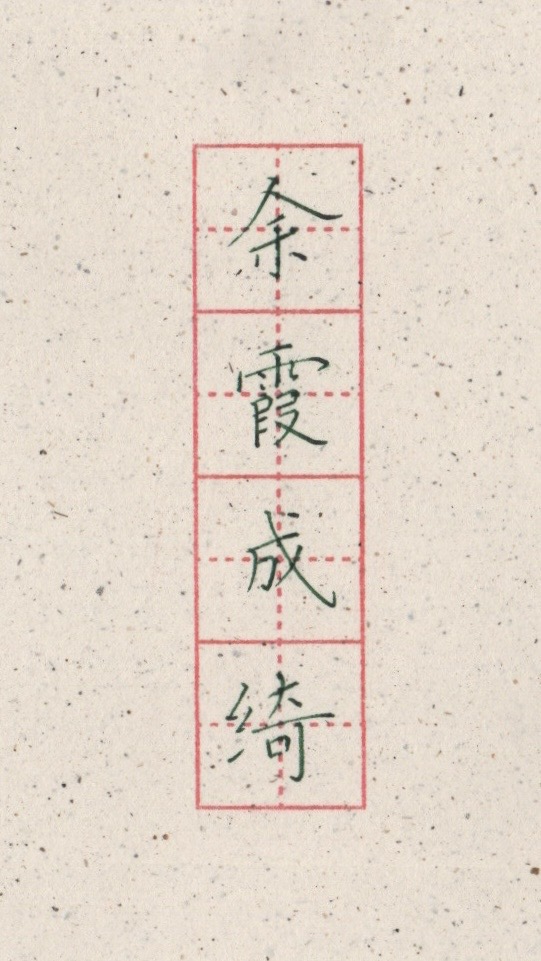 余霞成绮